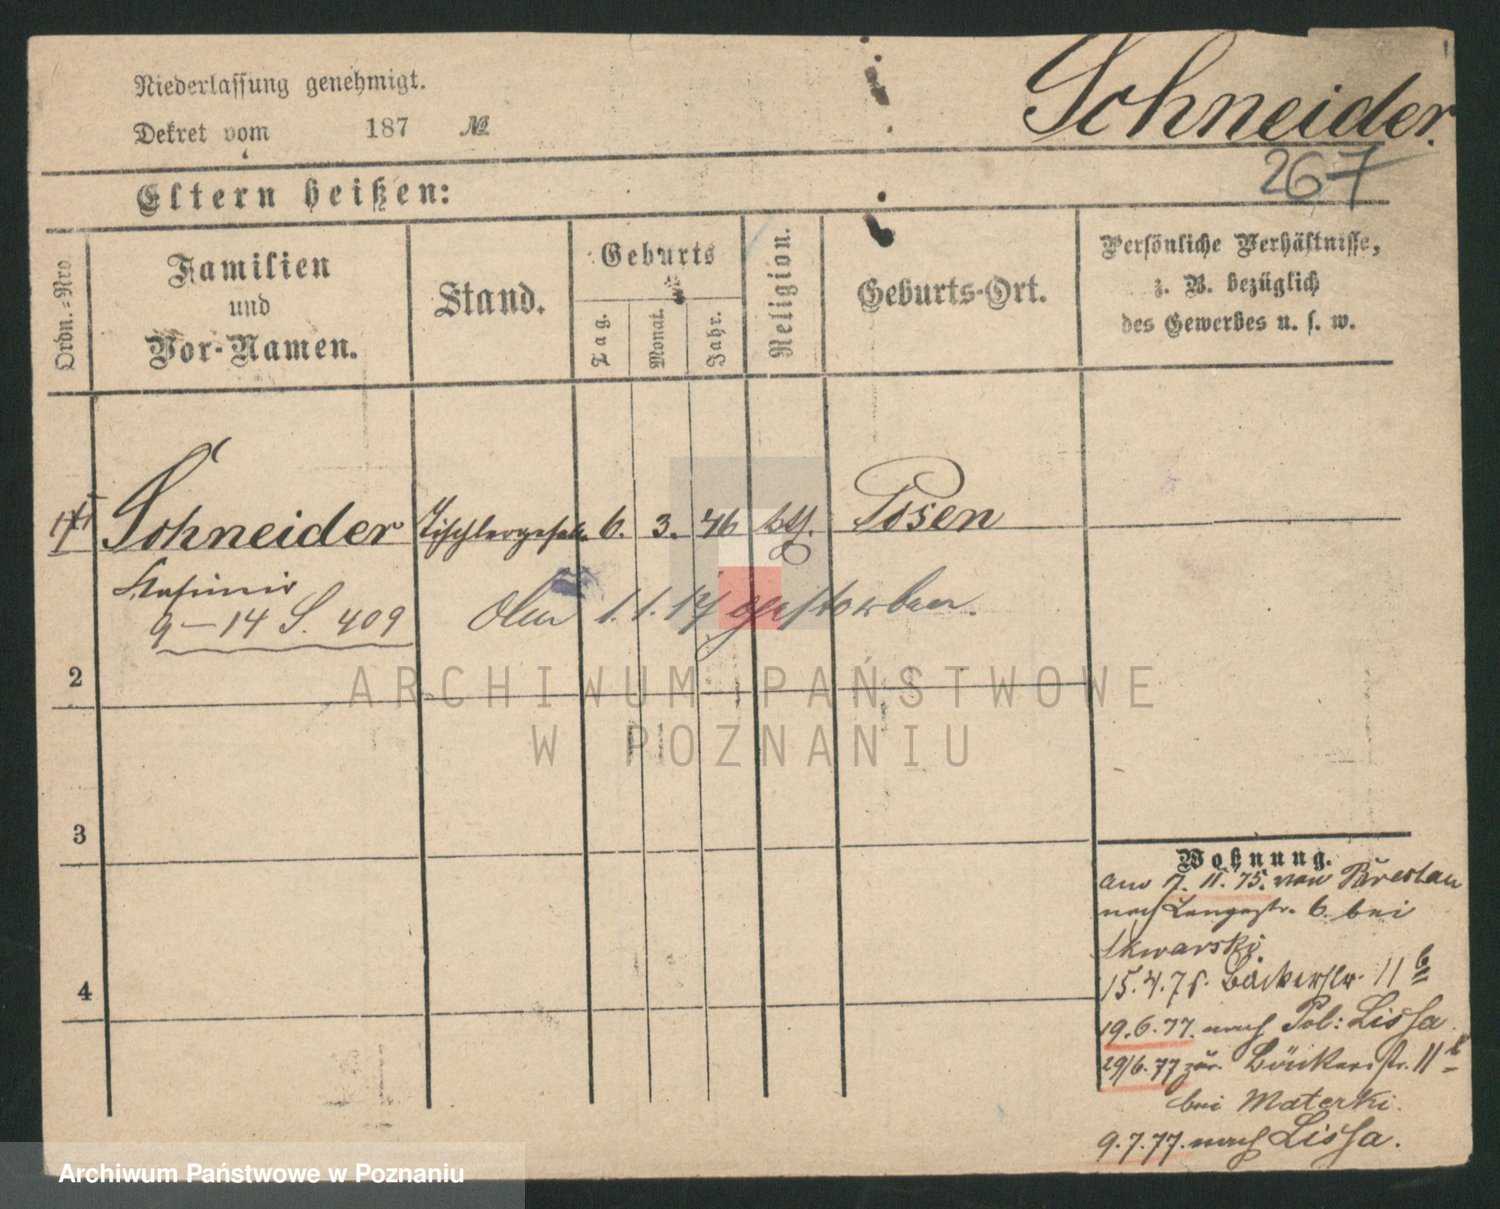 Niederlassung genehmigt.
Schneider.
Dekret vom 187 №
267
Eltern heißen:
Ordn.-Nro.
Familien
und
Vor-Namen.
Stand.
Geburts
Tag.
Monat.
Jahr.
Religion.
Geburts-Ort.
Persönliche Verhältnisse,
z. B. bezüglich
des Gewerbes u. s. w.
Schneider Tischlergesell. 6. 3. 46 kth. Posen
Kasimir
9-14 S. 409
1.1. gestorben.
2
3
4
ARCHIWUM PAŃSTWOWE
W POZNANIU
Wohnung.
am 7. 11. 75. von Breslau
nach Langestr. 6. bei
Skwarski
15. 4. 76. Bäckerstr. 11 b
19. 6. 77. nach Pol: Lissa.
29/6. 77 zur. Bäckerstr. 11 b
bei Materki.
9. 7. 77. nach Lissa.
Archiwum Państwowe w Poznaniu